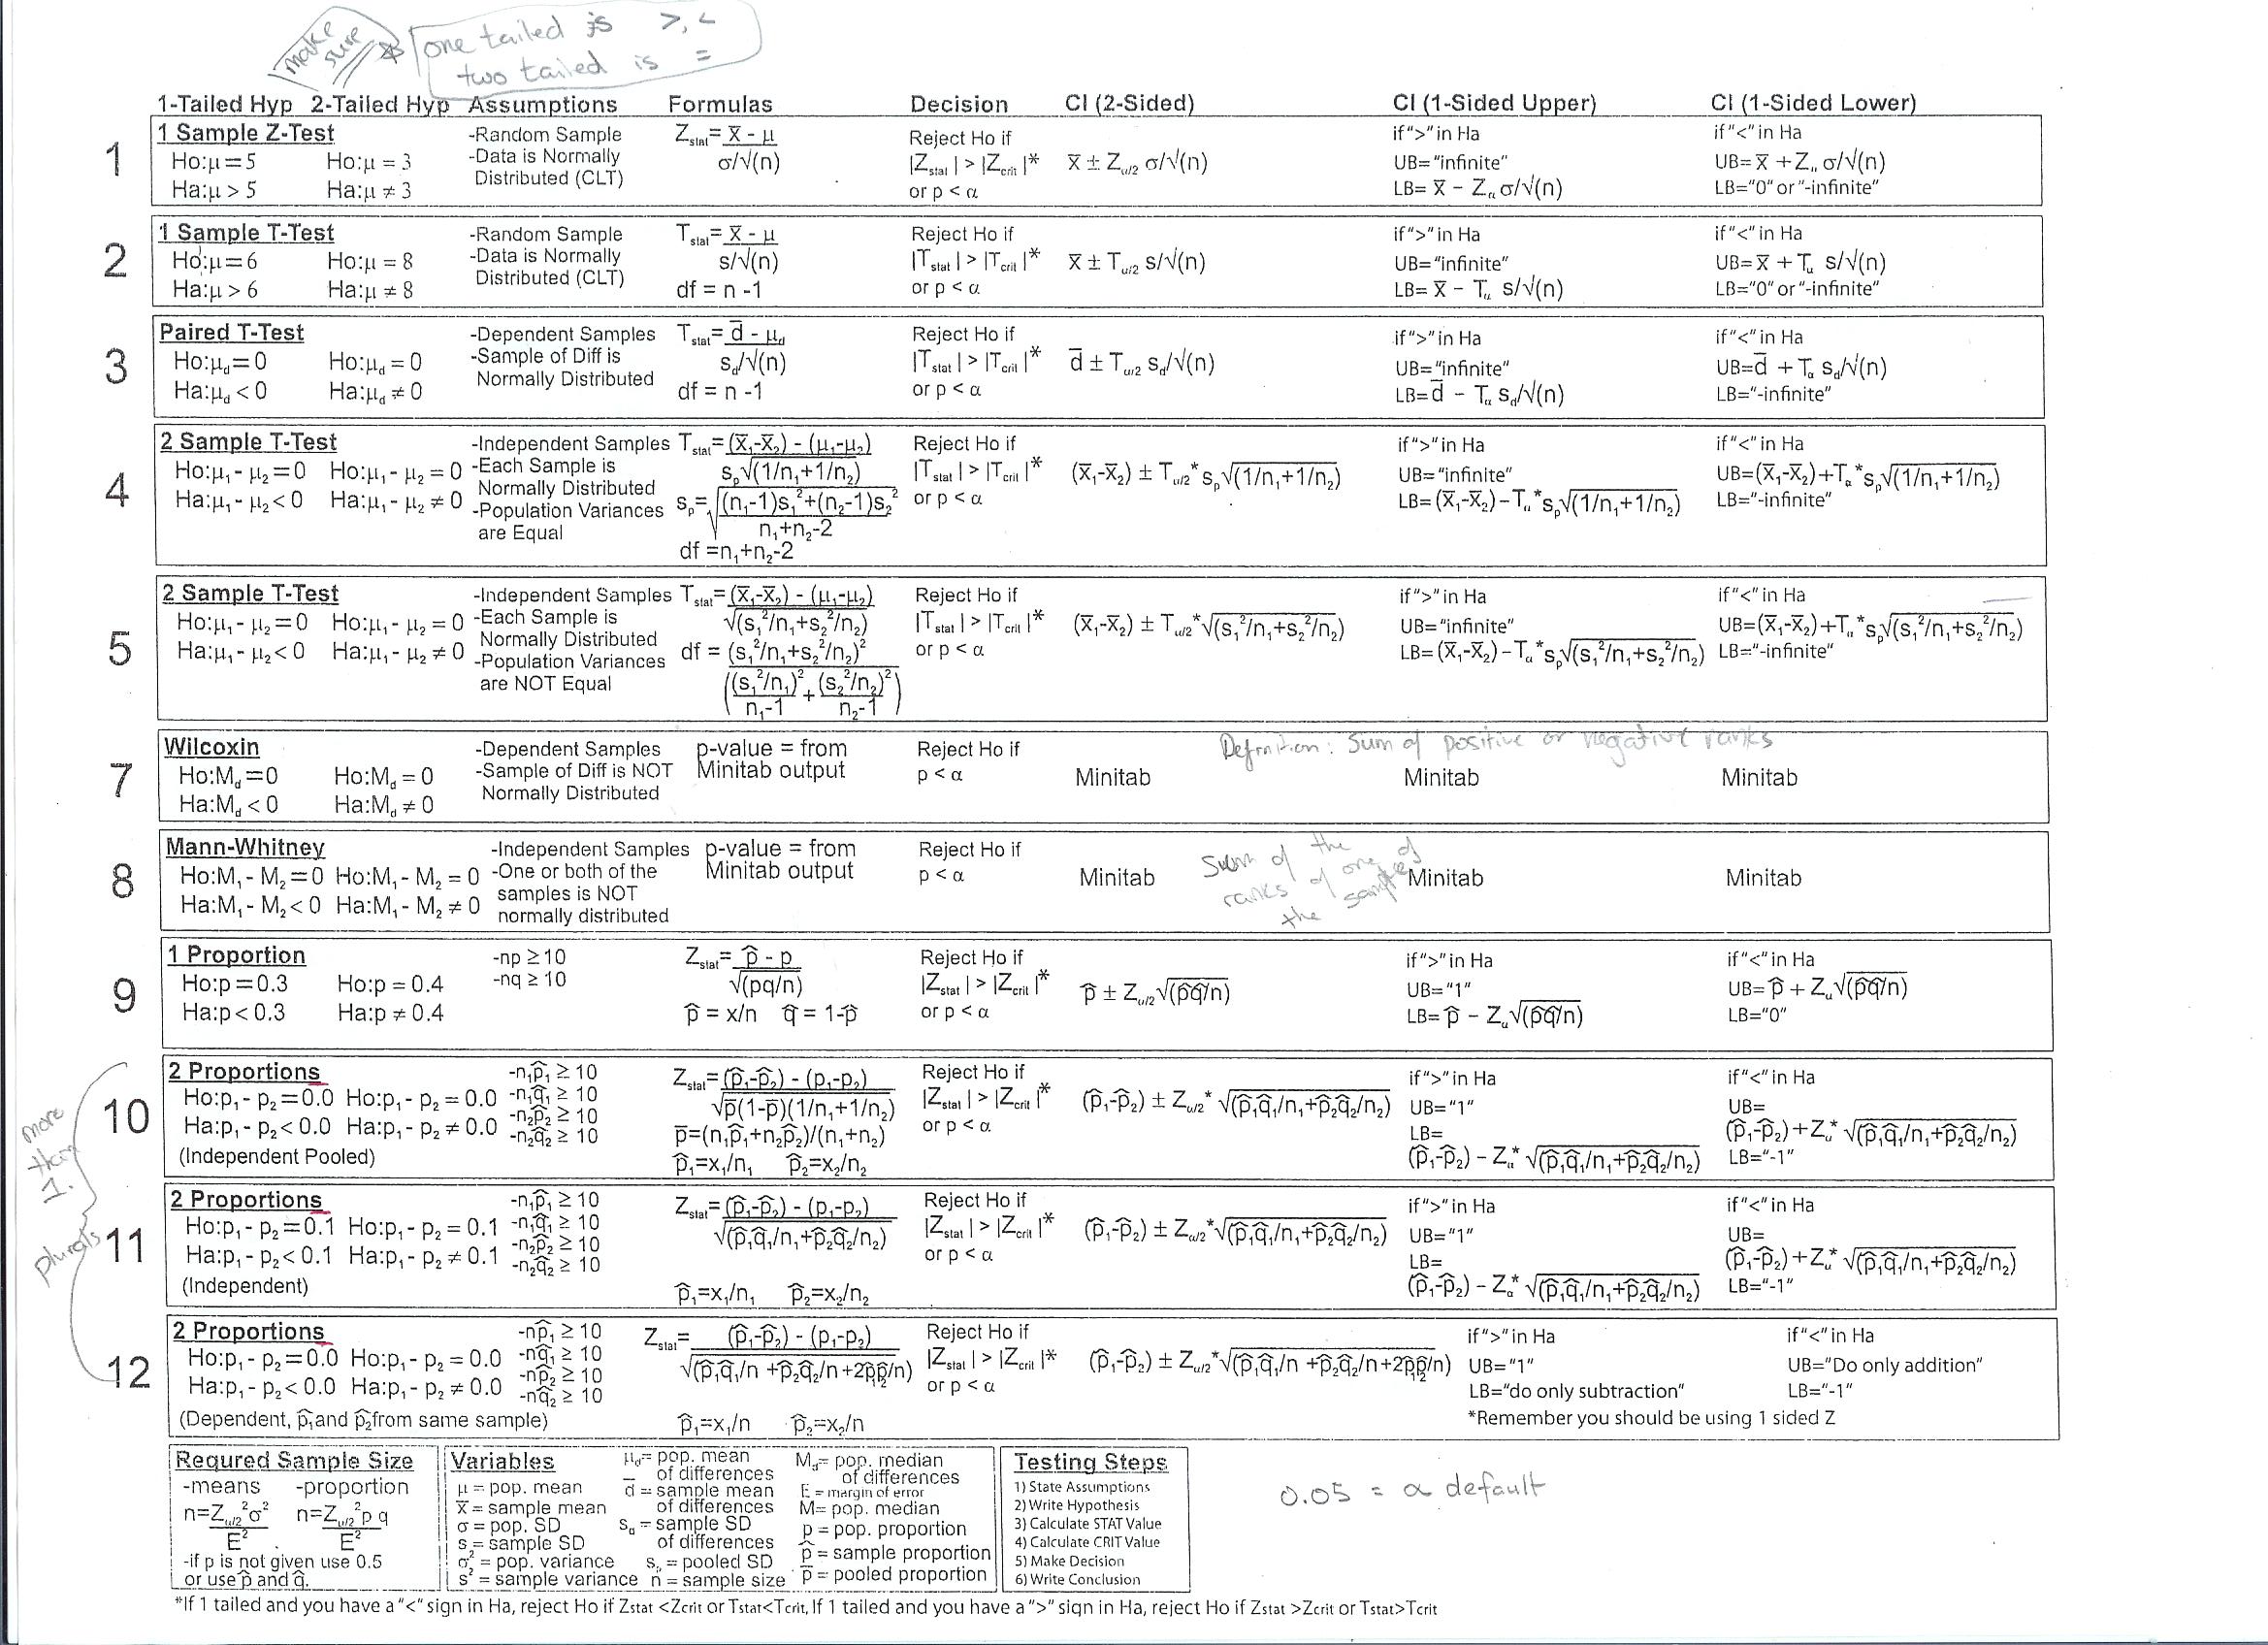 make sure
one tailed is >, <
two tailed is =
1-Tailed Hyp 2-Tailed Hyp Assumptions Formulas Decision CI (2-Sided) CI (1-Sided Upper) CI (1-Sided Lower)
1
1 Sample Z-Test
Ho:μ = 5 Ho:μ = 3
Ha:μ > 5 Ha:μ ≠ 3
-Random Sample
-Data is Normally
Distributed (CLT)
Zstat= x̅ - μ
σ/√(n)
Reject Ho if
|Zstat| > |Zcrit|*
or p < α
x̅ ± Zα/2 σ/√(n)
if ">" in Ha
UB= "infinite"
LB= x̅ − Zα σ/√(n)
if "<" in Ha
UB= x̅ + Zα σ/√(n)
LB="0" or "-infinite"
2
1 Sample T-Test
Ho:μ = 6 Ho:μ = 8
Ha:μ > 6 Ha:μ ≠ 8
-Random Sample
-Data is Normally
Distributed (CLT)
Tstat= x̅ - μ
s/√(n)
df = n -1
Reject Ho if
|Tstat| > |Tcrit|*
or p < α
x̅ ± Tα/2 s/√(n)
if ">" in Ha
UB= "infinite"
LB= x̅ − Tα s/√(n)
if "<" in Ha
UB= x̅ + Tα s/√(n)
LB="0" or "-infinite"
3
Paired T-Test
Ho:μd = 0 Ho:μd = 0
Ha:μd < 0 Ha:μd ≠ 0
-Dependent Samples
-Sample of Diff is
Normally Distributed
Tstat= d̅ - μd
sd/√(n)
df = n -1
Reject Ho if
|Tstat| > |Tcrit|*
or p < α
d̅ ± Tα/2 sd/√(n)
if ">" in Ha
UB= "infinite"
LB= d̅ − Tα sd/√(n)
if "<" in Ha
UB= d̅ + Tα sd/√(n)
LB="-infinite"
4
2 Sample T-Test
Ho:μ1 - μ2 = 0 Ho:μ1 - μ2 = 0
Ha:μ1 - μ2 < 0 Ha:μ1 - μ2 ≠ 0
-Independent Samples
-Each Sample is
Normally Distributed
-Population Variances
are Equal
Tstat= (x̅1-x̅2) - (μ1-μ2)
sp√(1/n1+1/n2)
sp= √(n1-1)s1²+(n2-1)s2²
n1+n2-2
df =n1+n2-2
Reject Ho if
|Tstat| > |Tcrit|*
or p < α
(x̅1-x̅2) ± Tα/2*sp√(1/n1+1/n2)
if ">" in Ha
UB= "infinite"
LB= (x̅1-x̅2) − Tα*sp√(1/n1+1/n2)
if "<" in Ha
UB=(x̅1-x̅2)+Tα*sp√(1/n1+1/n2)
LB="-infinite"
5
2 Sample T-Test
Ho:μ1 - μ2 = 0 Ho:μ1 - μ2 = 0
Ha:μ1 - μ2 < 0 Ha:μ1 - μ2 ≠ 0
-Independent Samples
-Each Sample is
Normally Distributed
-Population Variances
are NOT Equal
Tstat= (x̅1-x̅2) - (μ1-μ2)
√(s1²/n1+s2²/n2)
df = (s1²/n1+s2²/n2)²
((s1²/n1)² + (s2²/n2)²)
n1-1 n2-1
Reject Ho if
|Tstat| > |Tcrit|*
or p < α
(x̅1-x̅2) ± Tα/2*√(s1²/n1+s2²/n2)
if ">" in Ha
UB= "infinite"
LB= (x̅1-x̅2) − Tα*sp√(s1²/n1+s2²/n2)
if "<" in Ha
UB=(x̅1-x̅2)+Tα*sp√(s1²/n1+s2²/n2)
LB="-infinite"
7
Wilcoxin
Ho:Md = 0 Ho:Md = 0
Ha:Md < 0 Ha:Md ≠ 0
-Dependent Samples
-Sample of Diff is NOT
Normally Distributed
p-value = from
Minitab output
Reject Ho if
p < α
Definition: Sum of positive or negative ranks
Minitab Minitab Minitab
8
Mann-Whitney
Ho:M1 - M2 = 0 Ho:M1 - M2 = 0
Ha:M1 - M2 < 0 Ha:M1 - M2 ≠ 0
-Independent Samples
-One or both of the
samples is NOT
normally distributed
p-value = from
Minitab output
Reject Ho if
p < α
Sum of the
ranks of one of
the samples
Minitab Minitab Minitab
9
1 Proportion
Ho:p = 0.3 Ho:p = 0.4
Ha:p < 0.3 Ha:p ≠ 0.4
-np ≥ 10
-nq ≥ 10
Zstat= p̂ - p
√(pq/n)
p̂ = x/n q̂ = 1-p̂
Reject Ho if
|Zstat| > |Zcrit|*
or p < α
p̂ ± Zα/2√(p̂q̂/n)
if ">" in Ha
UB= "1"
LB= p̂ − Zα√(p̂q̂/n)
if "<" in Ha
UB= p̂ + Zα√(p̂q̂/n)
LB="0"
more than 1.
plurals
10
2 Proportions
Ho:p1 - p2 = 0.0 Ho:p1 - p2 = 0.0
Ha:p1 - p2 < 0.0 Ha:p1 - p2 ≠ 0.0
(Independent Pooled)
-n1p̂1 ≥ 10
-n1q̂1 ≥ 10
-n2p̂2 ≥ 10
-n2q̂2 ≥ 10
Zstat= (p̂1-p̂2) - (p1-p2)
√p̅(1-p̅)(1/n1+1/n2)
p̅=(n1p̂1+n2p̂2)/(n1+n2)
p̂1=x1/n1 p̂2=x2/n2
Reject Ho if
|Zstat| > |Zcrit|*
or p < α
(p̂1-p̂2) ± Zα/2* √(p̂1q̂1/n1+p̂2q̂2/n2)
if ">" in Ha
UB= "1"
LB=
(p̂1-p̂2) − Zα* √(p̂1q̂1/n1+p̂2q̂2/n2)
if "<" in Ha
UB=
(p̂1-p̂2)+Zα* √(p̂1q̂1/n1+p̂2q̂2/n2)
LB="-1"
11
2 Proportions
Ho:p1 - p2 = 0.1 Ho:p1 - p2 = 0.1
Ha:p1 - p2 < 0.1 Ha:p1 - p2 ≠ 0.1
(Independent)
-n1p̂1 ≥ 10
-n1q̂1 ≥ 10
-n2p̂2 ≥ 10
-n2q̂2 ≥ 10
Zstat= (p̂1-p̂2) - (p1-p2)
√(p̂1q̂1/n1+p̂2q̂2/n2)
p̂1=x1/n1 p̂2=x2/n2
Reject Ho if
|Zstat| > |Zcrit|*
or p < α
(p̂1-p̂2) ± Zα/2*√(p̂1q̂1/n1+p̂2q̂2/n2)
if ">" in Ha
UB= "1"
LB=
(p̂1-p̂2) − Zα* √(p̂1q̂1/n1+p̂2q̂2/n2)
if "<" in Ha
UB=
(p̂1-p̂2)+Zα* √(p̂1q̂1/n1+p̂2q̂2/n2)
LB="-1"
12
2 Proportions
Ho:p1 - p2 = 0.0 Ho:p1 - p2 = 0.0
Ha:p1 - p2 < 0.0 Ha:p1 - p2 ≠ 0.0
(Dependent, p̂1 and p̂2 from same sample)
-np̂1 ≥ 10
-nq̂1 ≥ 10
-np̂2 ≥ 10
-nq̂2 ≥ 10
Zstat= (p̂1-p̂2) - (p1-p2)
√(p̂1q̂1/n +p̂2q̂2/n+2p̂1p̂2/n)
p̂1=x1/n p̂2=x2/n
Reject Ho if
|Zstat| > |Zcrit|*
or p < α
(p̂1-p̂2) ± Zα/2*√(p̂1q̂1/n +p̂2q̂2/n+2p̂1p̂2/n)
if ">" in Ha
UB= "1"
LB="do only subtraction"
if "<" in Ha
UB="Do only addition"
LB="-1"
*Remember you should be using 1 sided Z
Requred Sample Size
-means -proportion
n=Zα/2²σ² n=Zα/2²p q
E² E²
-if p is not given use 0.5
or use p̂ and q̂.
Variables
μ = pop. mean
x̅ = sample mean
σ = pop. SD
s = sample SD
σ² = pop. variance
s² = sample variance
μd= pop. mean
of differences
d̅ = sample mean
of differences
sd = sample SD
of differences
sp = pooled SD
n = sample size
Md= pop. median
of differences
E = margin of error
M= pop. median
p = pop. proportion
p̂ = sample proportion
p̅ = pooled proportion
Testing Steps
1) State Assumptions
2) Write Hypothesis
3) Calculate STAT Value
4) Calculate CRIT Value
5) Make Decision
6) Write Conclusion
0.05 = α default
*If 1 tailed and you have a "<" sign in Ha, reject Ho if Zstat <Zcrit or Tstat<Tcrit, If 1 tailed and you have a ">" sign in Ha, reject Ho if Zstat >Zcrit or Tstat>Tcrit